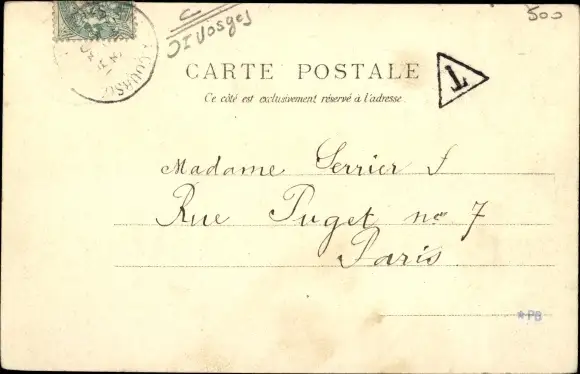 Vosges
500
CARTE POSTALE
T
Ce côté est exclusivement réservé à l'adresse
Madame Serrier
Rue Puget no 7
Paris
*PB